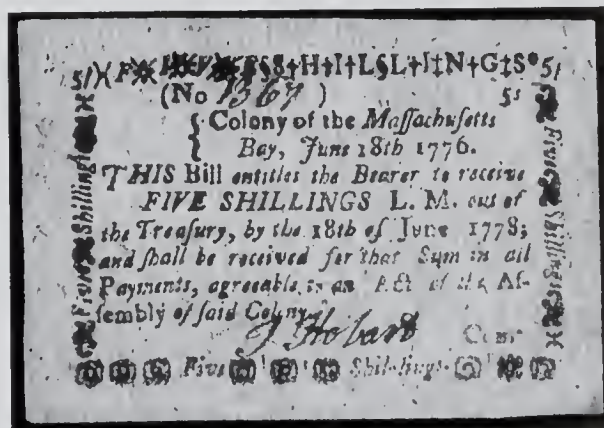 5/)(F S§†H†I†L§L†I‡N†G‡S* 5/
(No 1367) 5s
Colony of the Maſſachuſetts
Bay, June 18th 1776.
THIS Bill entitles the Bearer to receive
FIVE SHILLINGS L. M. out of
the Treaſury, by the 18th of June 1778;
and ſhall be received for that Sum in all
Payments, agreeable to an Act of the Aſ-
ſembly of ſaid Colony.
J Hobart Com.
Five Shillings
Five Shillings
Five Shillings